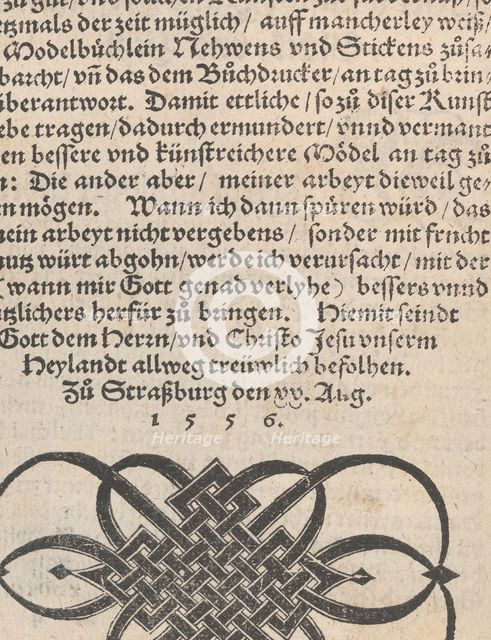 etzmals der zeit müglich/ auff mancherley weiß/
Modelbüchlein Nehwens vnd Stickens zůsa⸗
barcht/ vñ das dem Bůchdrucker/ an tag zů brin⸗
überantwort. Damit ettliche/ so zů diser Kunst
ebe tragen/ dadurch ermundert/ vnnd vermant
en bessere vnd künstreichere Mödel an tag zů
n: Die ander aber/ meiner arbeyt dieweil ge⸗
en mögen. Wann ich dann spüren würd/ das
mein arbeyt nicht vergebens/ sonder mit frucht
nutz würt abgohn/ werde ich verursacht/ mit der
(wann mir Gott genad verlyhe) bessers vnnd
utzlichers herfür zů bringen. Hiemit seindt
Gott dem Herrn/ vnd Christo Jesu vnserm
Heylandt allweg treüwlich befolhen.
Zů Straßburg den xx. Aug.
1 5 5 6.
Heritage Heritage